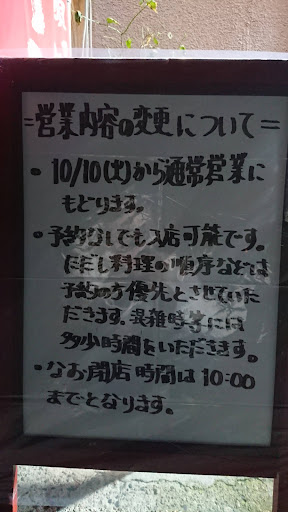 =営業内容の変更について=
・10/10(土)から通常営業に
もどります。
・予約なしでも入店可能です。
ただし料理の順序などは
予約の方優先とさせていた
だきます。混雑時等には
多少時間をいただきます。
・なお閉店時間は10:00
までとなります。